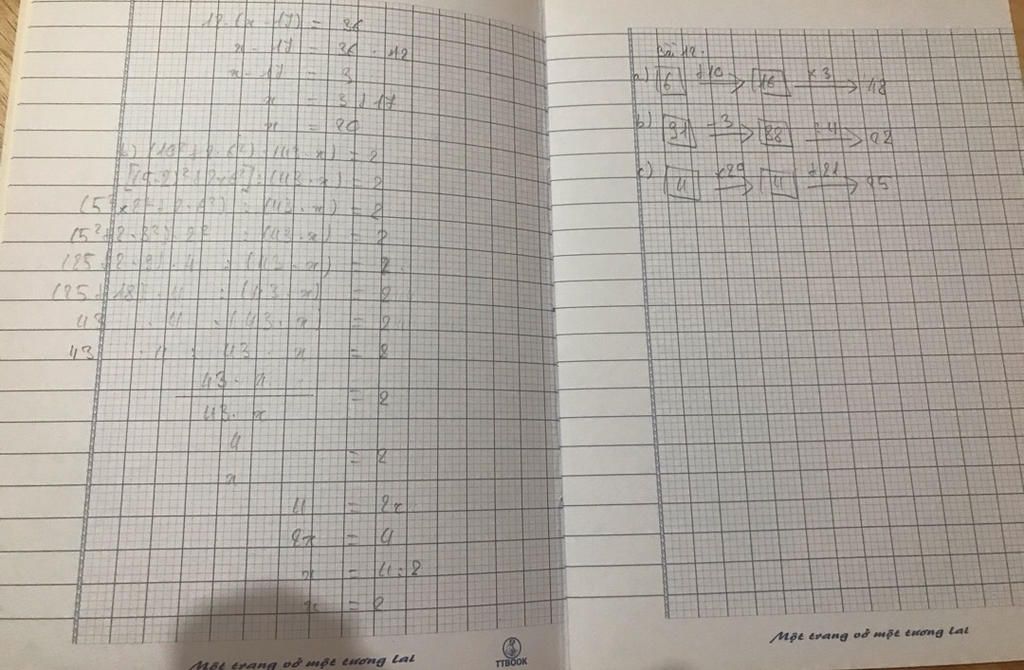 12.(x - 17) = 36
x - 17 = 36 : 12
x - 17 = 3
x = 3 + 17
x = 20
b) (10² + 2.6²) : (43.x) = 2
[(5.2)² + 2.6²] : (43.x) = 2
: (43.x) = 2
(5² + 2.3²).2² : (43.x) = 2
(25 + 2.9).4 : (43.x) = 2
(25 + 18).4 : (43.x) = 2
43 . 4 : (43.x) = 2
43 . 4 : 43 . x = 2
= 2
43. x
4
= 2
x
4 = 2x
2x = 4
x = 4 : 2
x = 2
Một trang vở một tương lai
TTBOOK
Bài 12:
a) 6 +10 16 x3 48
b) 91 -3 88 :4 22
c) 4 +21 25
Một trang vở một tương lai